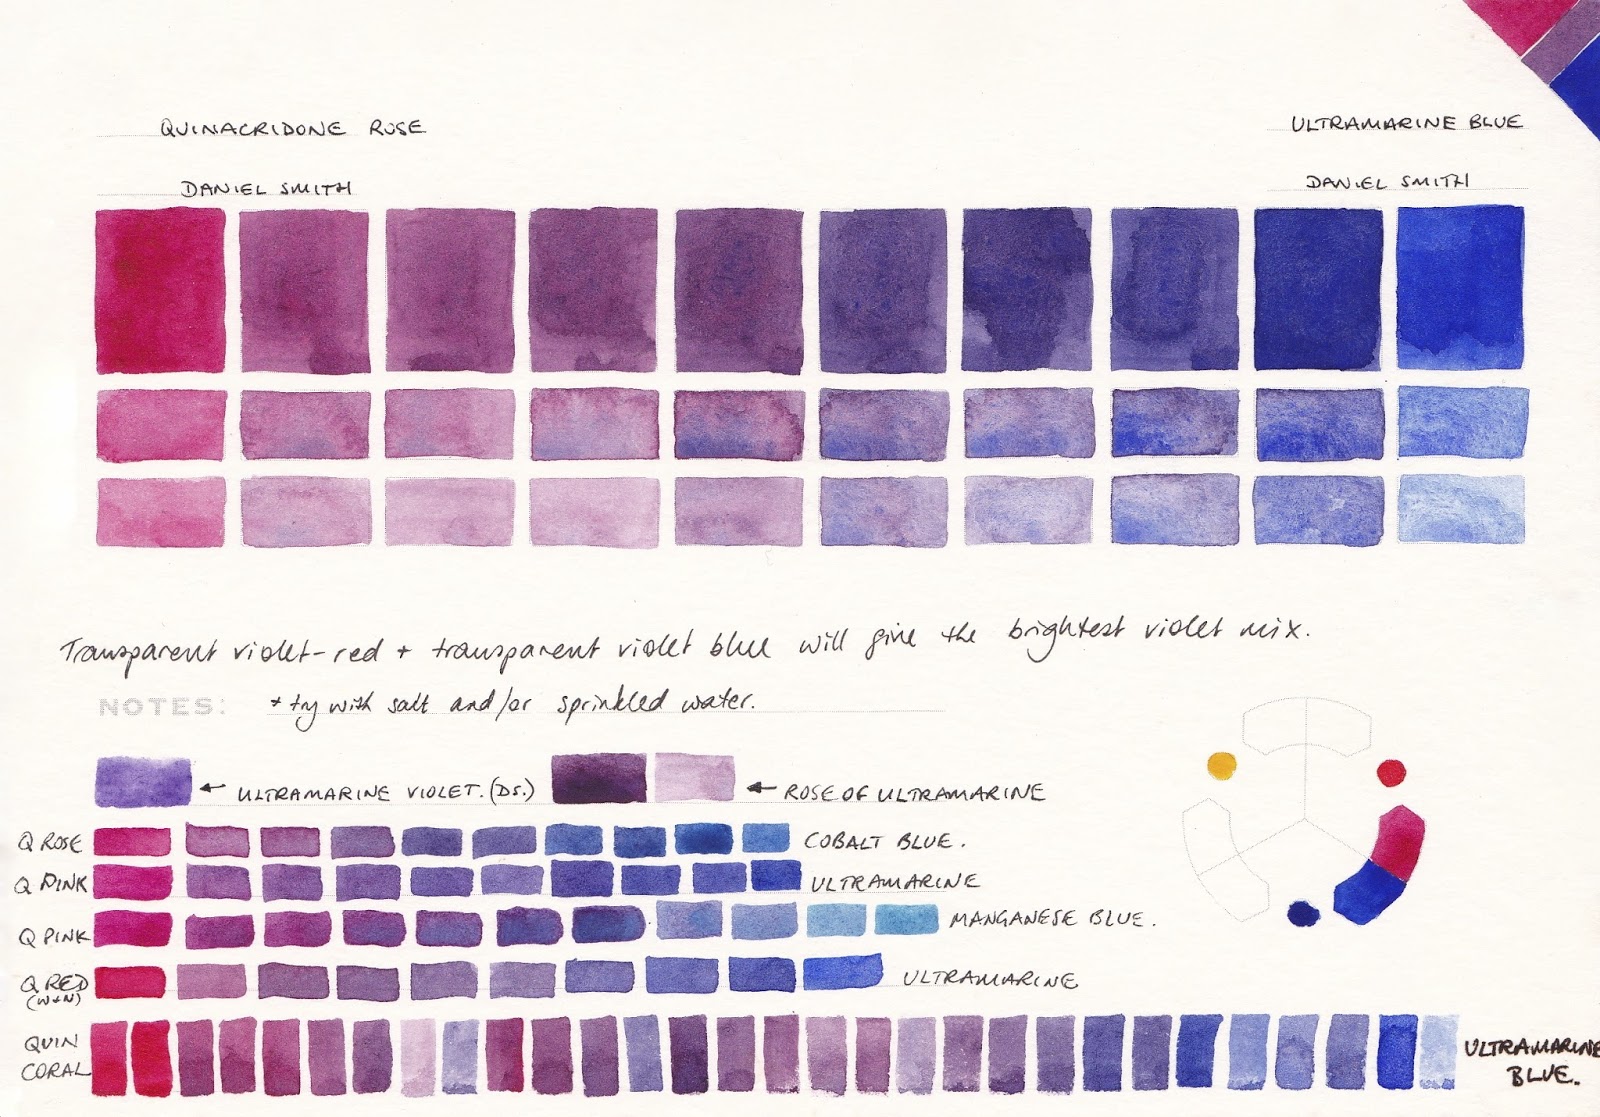 QUINACRIDONE ROSE
ULTRAMARINE BLUE
DANIEL SMITH
DANIEL SMITH
Transparent violet-red + transparent violet blue will give the brightest violet mix.
NOTES: + try with salt and/or sprinkled water.
← ULTRAMARINE VIOLET. (DS.)
← ROSE OF ULTRAMARINE
Q ROSE
COBALT BLUE.
Q PINK
ULTRAMARINE
Q PINK
MANGANESE BLUE.
Q RED
(W+N)
ULTRAMARINE
QUIN
CORAL
ULTRAMARINE
BLUE.